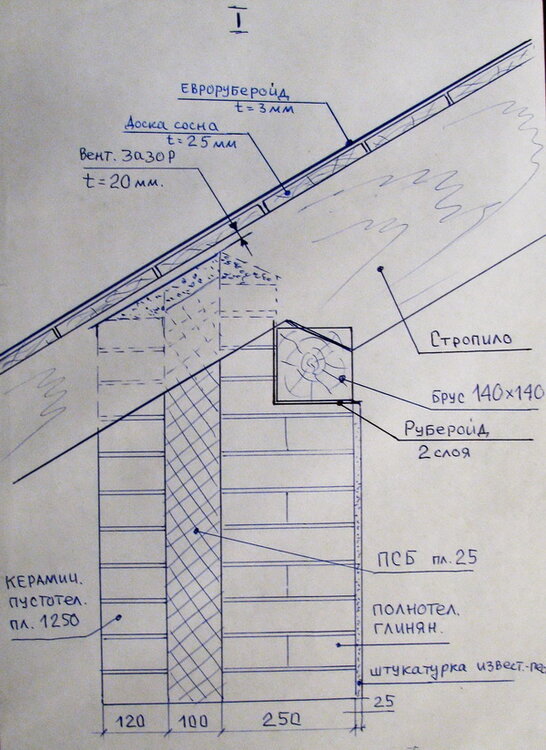 I
ЕВРОРУБЕРОЙД
t = 3мм
Доска сосна
t = 25 мм
Вент. зазор
t = 20 мм.
Стропило
БРУС 140×140
Рубероид
2 слоя
ПСБ пл. 25
КЕРАМИЧ.
ПУСТОТЕЛ.
пл. 1250
ПОЛНОТЕЛ.
ГЛИНЯН.
штукатурка извест.-пес
25
120 100 250